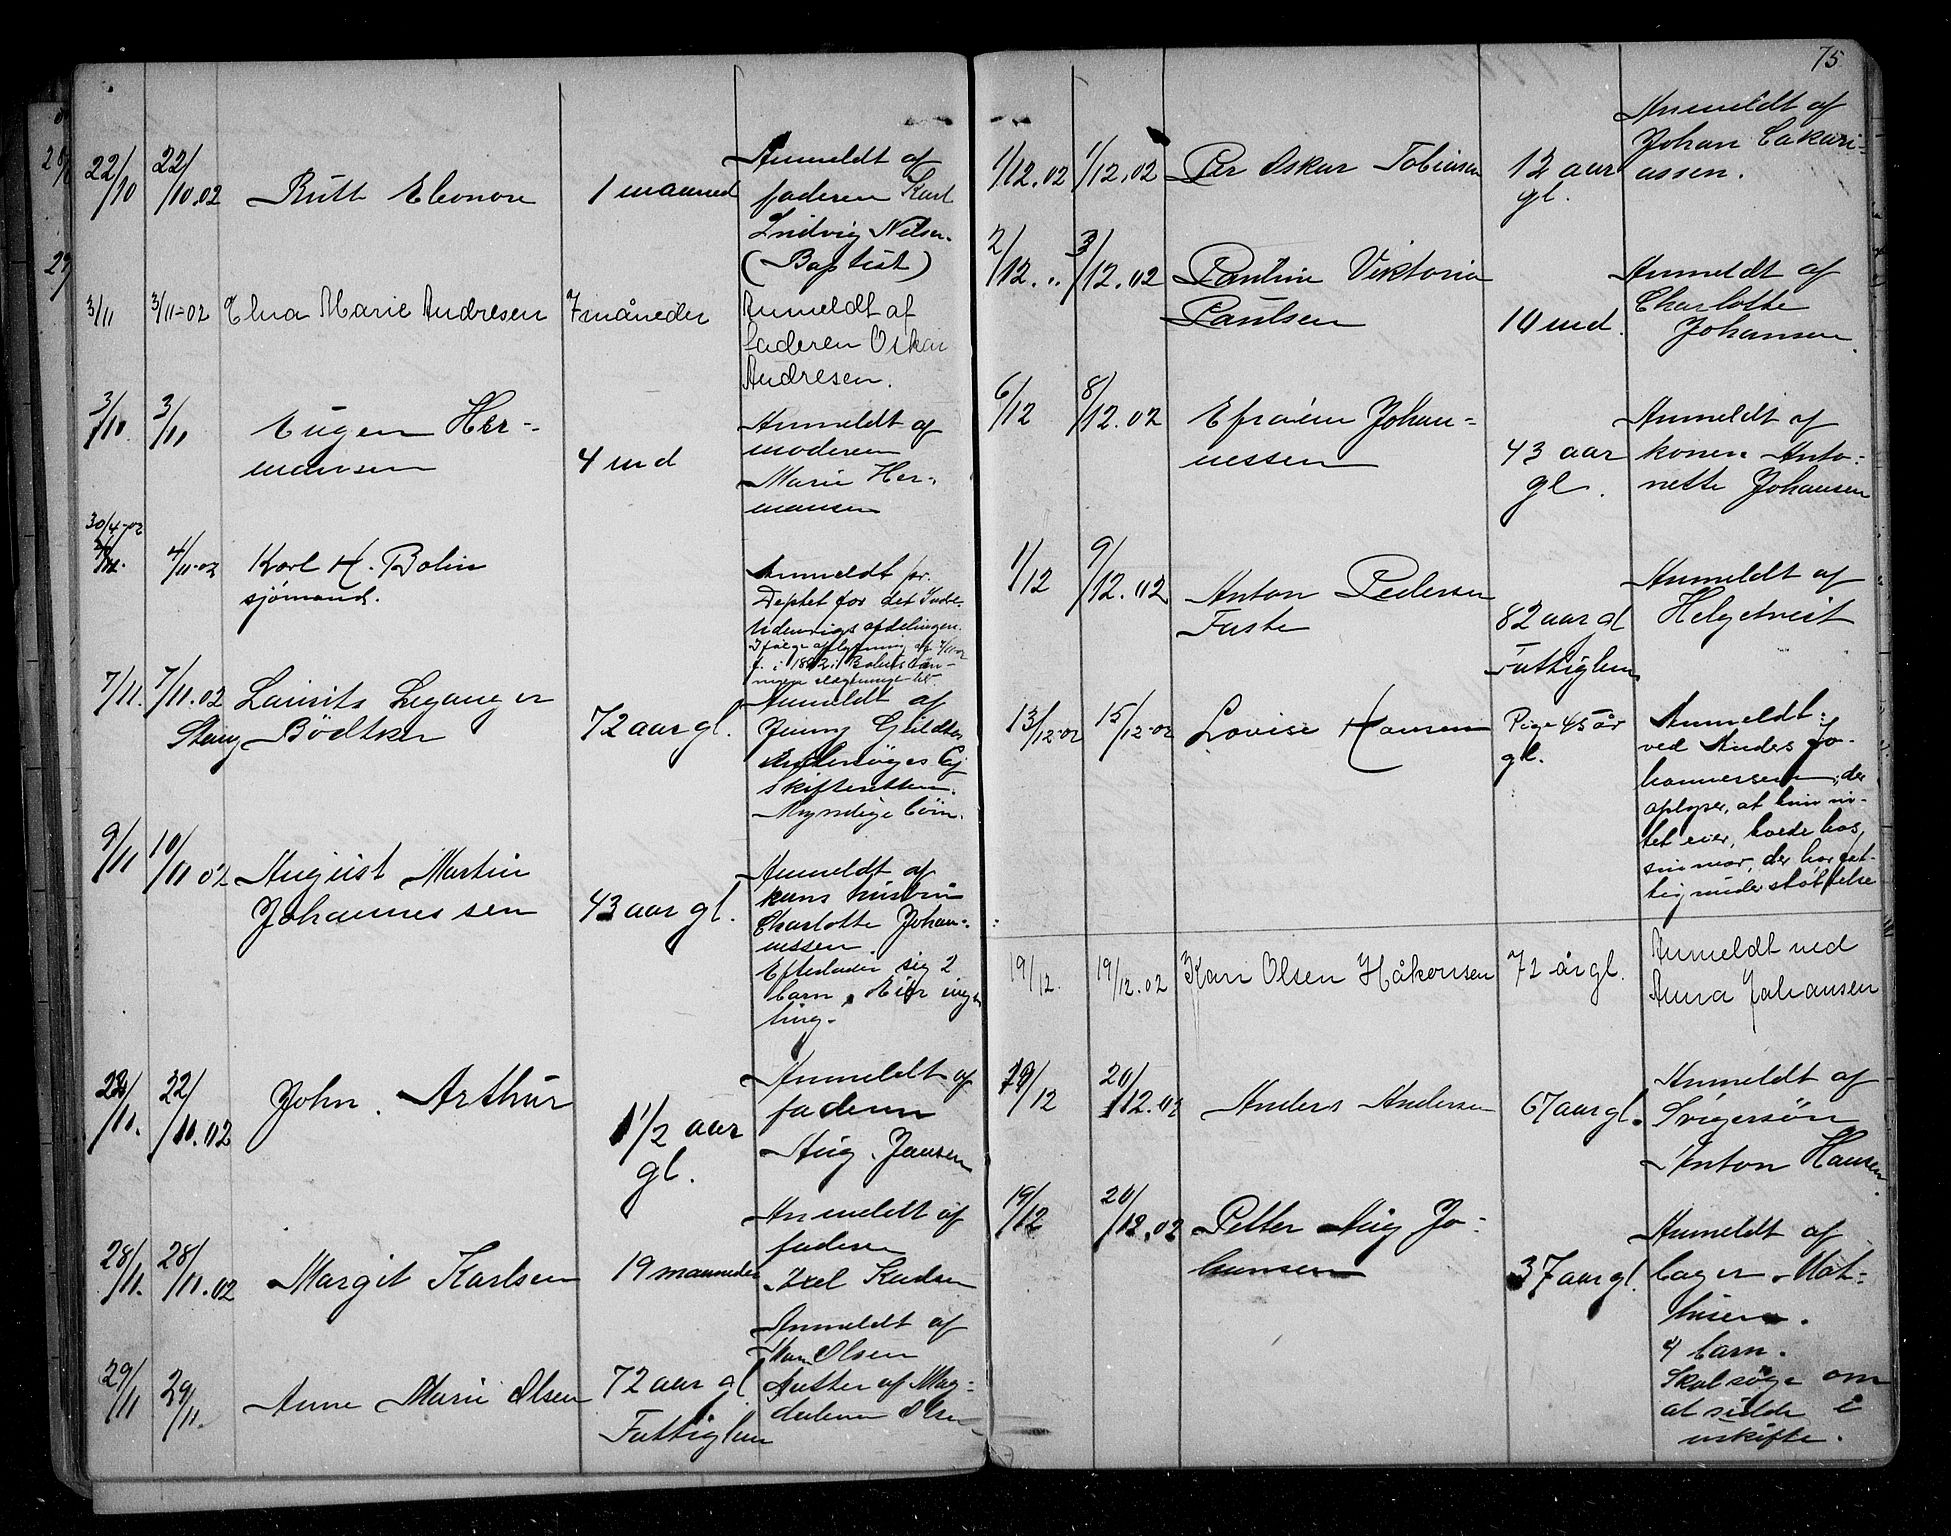 22/10 22/10.02 Ruth Eleonore 1 maaned Anmeldt af
faderen Karl
Ludvig Nelsen.
(Baptist)
3/11 3/11-02 Elna Marie Andresen 7 måneder Anmeldt af
faderen Oskar
Andresen.
3/11. 3/11 Eugen Her-
mansen 4 md Anmeldt af
moderen
Marie Her-
mansen
30/4-02
4/11-02 Karl H. Bolin
sjömand. Anmeldt fr.
Deptet for det Indre.
Udenrigsafdelingen.
7/11. 7/11.02 Laurits Leganger
Stang Bödtker 72 aar gl. Anmeldt af
Jenny
Skifteretten.
Myndige börn.
9/11 10/11 02 August Martin
Johannessen 43 aar gl. Anmeldt af
hans hustru
Charlotte Johan-
nessen.
Efterlader sig 2
barn. Eier ingen
ting.
22/11. 22/11.02 John. Arthur 1 1/2 aar
gl. Anmeldt af
faderen
Aug. Jansen
28/11. 28/11.02 Margit Karlsen 19 maaneder Anmeldt af
faderen
Axel
29/11 29/11. Anne Marie Olsen 72 aar gl
Fattiglem Anmeldt af
Olsen
Datter af Mag-
dalena Olsen
75
1/12.02 1/12.02 Per Oskar Tobiasen 12 aar
gl. Anmeldt af
Johan Cakari-
assen.
2/12.. 3/12.02 Pauline Viktoria
Paulsen 10 md. Anmeldt af
Charlotte
Johansen.
6/12 8/12.02 Efraim Johan-
nessen 43 aar
gl. Anmeldt af
konen Anto-
nette Johansen
1/12 9/12.02 Anton Pedersen
Faste 82 aar gl
Fattiglem Anmeldt af
Helgetveit
13/12-02 15/12-02 Lovise Hansen Pige 45 år
gl. Anmeldt
ved Anders Jo-
hannessen, der
oplyser, at hun in-
tet eier, boede hos
sin mor, der har fat-
tigunderstøttelse
19/12. 19/12.02 Kari Olsen Håkonsen 72 år gl. Anmeldt ved
Anna Johansen
19/12 20/12.02 Anders Andersen 67 aar gl. Anmeldt af
Svigersön
Anton Hansen.
19/12 20/12.02 Petter Aug Jo-
hansen 37 aar gl. Anmeldt af
bager Mat-
hisen.
4 barn.
Skal søge om
at sidde i
uskifte.